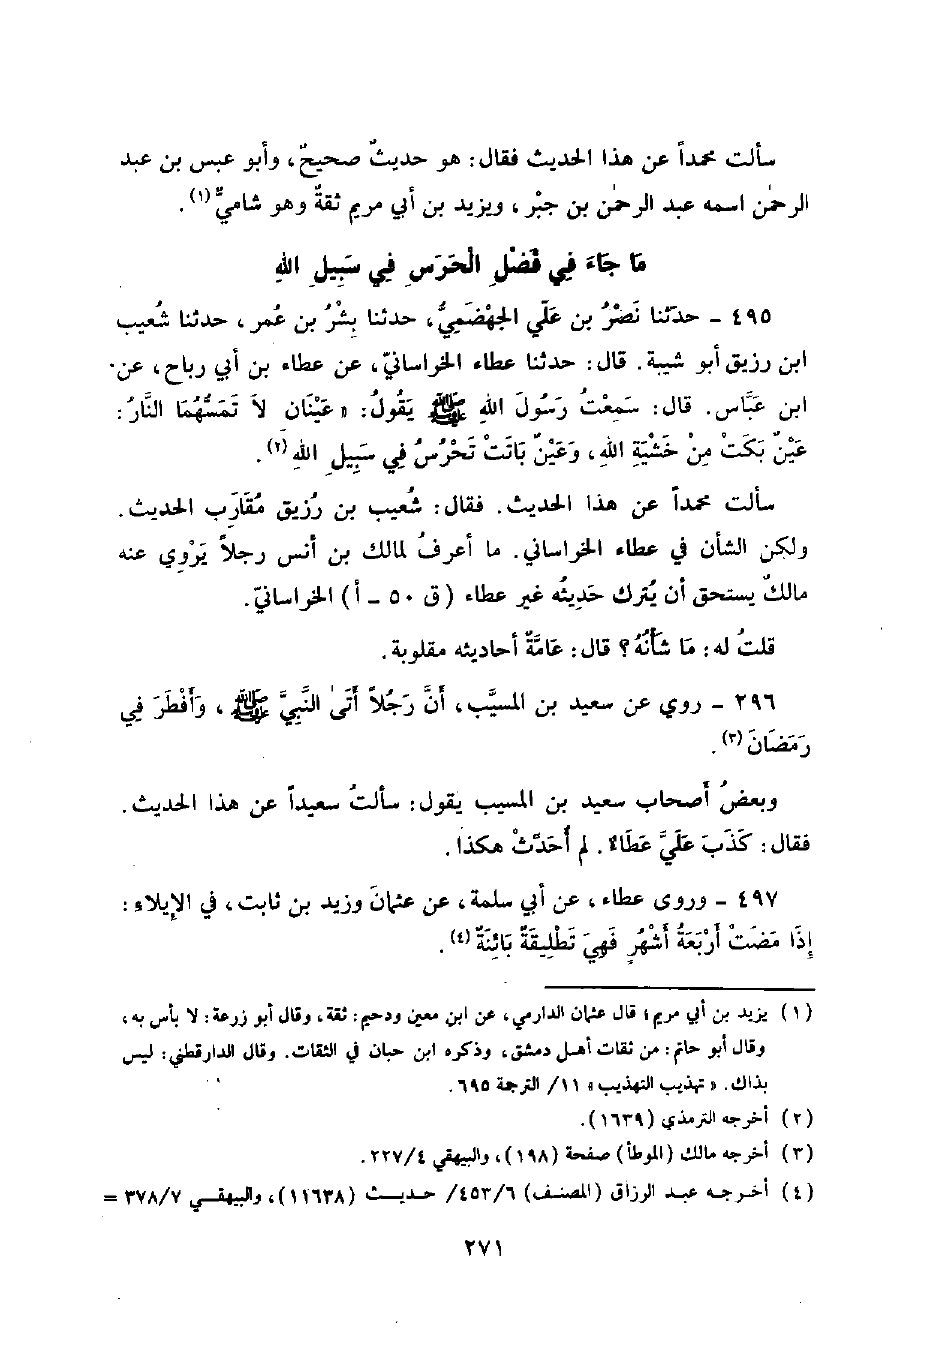 سألت محمداً عن هذا الحديث فقال: هو حديثٌ صحيحٌ، وأبو عبس بن عبد
الرحمٰن اسمه عبد الرحمٰن بن جبْر، ويزيد بن أبي مريم ثقةٌ وهو شاميٌّ(١).
مَا جَاءَ فِي فَضْلِ الْحَرَسِ فِي سَبِيلِ اللهِ
٤٩٥ - حدّثنا نَصْرُ بن عَلّي الجهْضَمِيُّ، حدثنا بِشْرُ بن عُمر، حدثنا شُعيب
ابن رزيق أبو شيبة. قال: حدثنا عطاء الخراسانيّ، عن عطاء بن أبي رباح، عن
ابن عَبَّاس. قال: سَمِعْتُ رَسُولَ اللهِ ﷺ يَقُولُ: «عَيْنَان لاَ تَمَسُّهُمَا النَّارُ:
عَيْنٌ بَكَتْ مِنْ خَشْيَةِ اللهِ، وَعَيْنٌ بَاتَتْ تَحْرُسُ فِي سَبِيلِ اللهِ(٢).
سألت محمداً عن هذا الحديث. فقال: شُعيب بن رُزيق مُقَارَب الحديث.
ولكن الشأن في عطاء الخراساني. ما أعرفُ لمالك بن أنس رجلاً يَرْوِي عنه
مالكٌ يستحق أن يُترك حَدِيثُه غير عطاء (ق ٥٠ - أ) الخراسانيّ.
قلتُ له: مَا شَأْنُهُ؟ قال: عَامَّةُ أحاديثه مقلوبة.
٢٩٦ - روي عن سعيد بن المسيَّب، أَنَّ رَجُلاً أَتَىٰ النَّبِيَّ ﷺ، وَأَفْطَرَ فِي
رَمَضَانَ(٣).
وبعضُ أَصحاب سعيد بن المسيب يقول: سألتُ سعيداً عن هذا الحديث.
فقال: كَذَبَ عَلَيَّ عَطَاءٌ. لم أُحَدِّثْ هكذا.
٤٩٧ - وروى عطاء، عن أبي سلمة، عن عثمانَ وزيد بن ثابت، في الإيلاء:
إِذَا مَضَتْ أَرْبَعَةُ أَشْهُرٍ فَهِيَ تَطْلِيقَةٌ بَائِنَةٌ(٤).
(١) يزيد بن أبي مريم؛ قال عثمان الدارمي، عن ابن معين ودحيم: ثقة، وقال أبو زرعة: لا بأس به،
وقال أبو حاتم: من ثقات أهل دمشق، وذكره ابن حبان في الثقات. وقال الدارقطني: ليس
بذاك. «تهذيب التهذيب» ١١/ الترجمة ٦٩٥.
(٢) أخرجه الترمذي (١٦٣٩).
(٣) أخرجه مالك (الموطأ) صفحة (١٩٨)، والبيهقي ٢٢٧/٤.
(٤) أخرجه عبد الرزاق (المصنف) ٤٥٣/٦/ حديث (١١٦٣٨)، والبيهقي ٣٧٨/٧ =
٢٧١